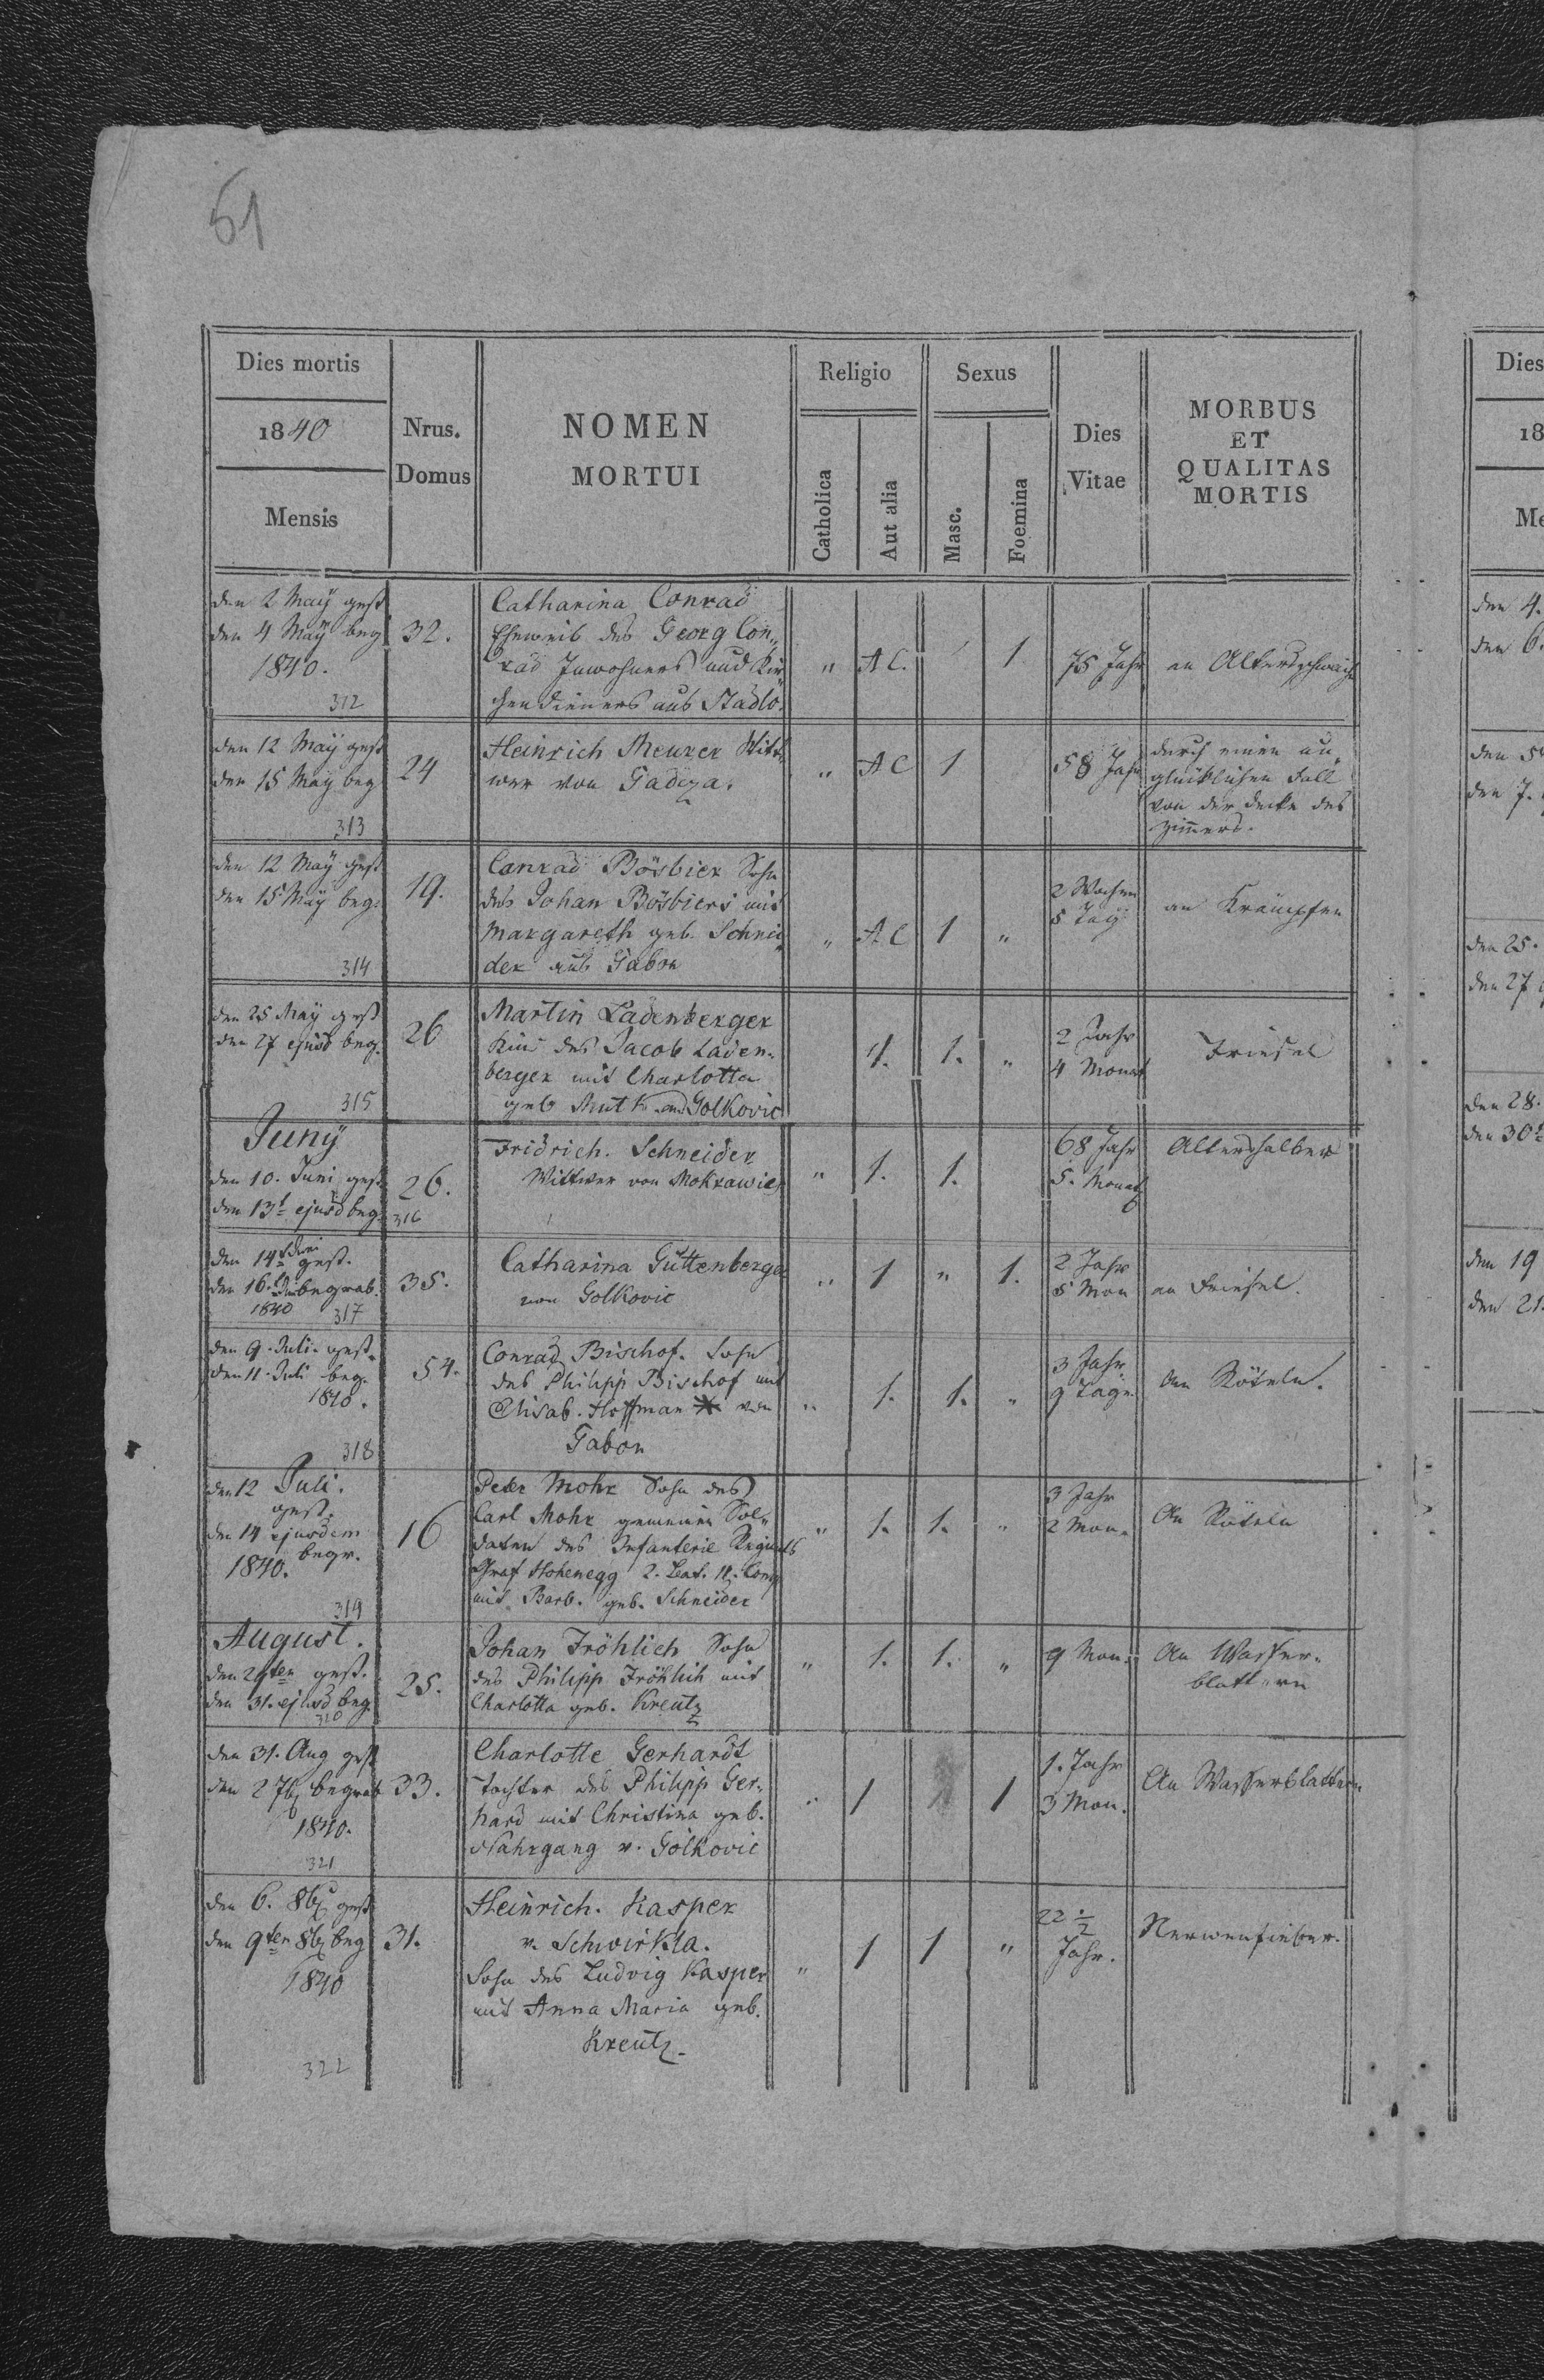 51
Dies mortis
1840
Mensis
Nrus.
Domus
NOMEN
MORTUI
Religio
Catholica
Aut alia
Sexus
Masc.
Foemina
Dies
Vitae
MORBUS
ET
QUALITAS
MORTIS
den 2 Maÿ gest
den 4 Maÿ beg
1840.
312
32.
Catharina Conrad
Eheweib des Georg Con„
rad Inwohners und Kir„
chendieners aus Stadlo.
„ A C. 1
75 Jahr
an Altersschwäche
den 12 Maÿ gest
den 15 Maÿ beg
313
24
Heinrich Meurer Witt„
wer von Gadiza.
„ A C 1
58 Jahr
durch einen un„
glücklichen Fall
von der Decke des
Zimmers.
den 12 Maÿ gest
den 15 Maÿ beg.
314
19.
Conrad Bösbier Sohn
des Johan Bösbiers mit
Margareth geb. Schnei„
der aus Gabon
„ A C 1 „
2 Wochen
5 Tag
an Krämpfen
den 25 May gest
den 27 ejusd beg.
315
26
Martin Ladenberger
Kind des Jacob Laden„
berger mit Charlotta
geb Muth aus Golkovic
1. 1. „
2 Jahr
4 Monat
Friesel
Junÿ
den 10. Juni gest
den 13t ejusd beg.
316
26.
Fridrich. Schneider
Wittwer von Mokrawies
„ 1. 1.
68 Jahr
5. Monat
Altershalber
den 14t Juni gest.
den 16. begrab.
1840
317
35.
Catharina Güttenberger
von Golkovic
„ 1 „ 1.
2 Jahr
5 Mon
an Friesel.
den 9. Juli. gest.
den 11. Juli beg.
1840.
318
54.
Conrad Bischof. Sohn
des Philipp Bischof mit
Elisab. Hoffman von
Gabon
„ 1. 1. „
3 Jahr
9 Tage
An Röteln.
den 12 Juli.
gest.
den 14 ejusdem
begr.
1840.
319
16
Peter Mohr Sohn des
Carl Mohr gemeinen Sol„
daten des Infanterie Regimts
Graf Hohenegg 2. Bat. 11. Comp
mit Barb. geb. Schneider
„ 1. 1. „
3 Jahr
2 Mon.
An Röteln
August.
den 29ten gest.
den 31. ejusd beg.
320
25.
Johan Fröhlich Sohn
des Philipp Fröhlich mit
Charlotta geb. Kreutz
„ 1. 1. „
9 Mon.
An Wasser„
blattern
den 31. Aug gest
den 2 7br begrab
1840.
321
33.
Charlotte Gerhardt
Tochter des Philipp Ger„
hard mit Christina geb.
Nahrgang v. Golkovic
„ 1 1
1. Jahr
3 Mon.
An Wasserblattern
den 6. 8br gest
den 9ten 8br beg
1840
322
31.
Heinrich. Kasper
v. Schwirkla.
Sohn des Ludvig Kasper
mit Anna Maria geb.
Kreutz.
„ 1 1 „
22 1/2
Jahr.
Nervenfieber.
Dies
18
Me
den 4.
den 6.
den 5
den 7.
den 25.
den 27
den 28.
den 30t
den 19
den 21.